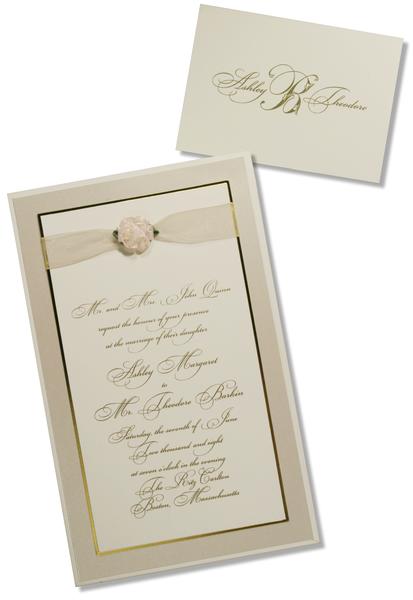 Ashley B Theodore
Mr. and Mrs. John Quinn
request the honour of your presence
at the marriage of their daughter
Ashley Margaret
to
Mr. Theodore Barkin
Saturday, the seventh of June
Two thousand and eight
at seven o'clock in the evening
The Ritz Carlton
Boston, Massachusetts